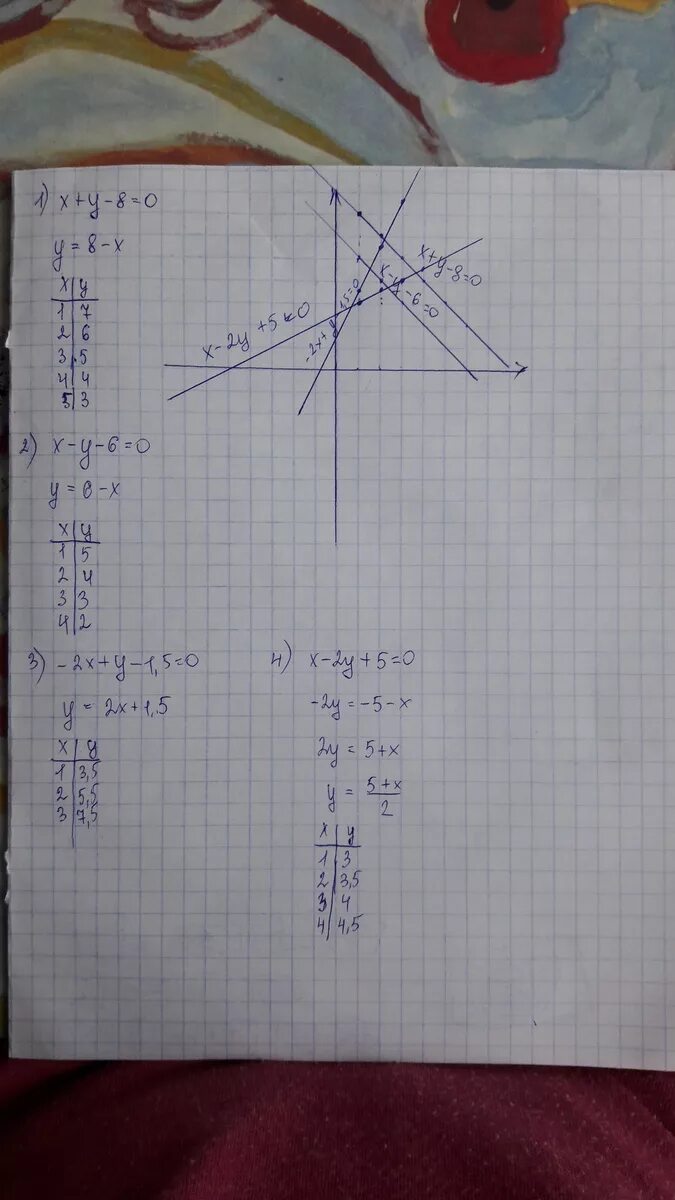 1) x+y-8=0
y = 8-x
x y
1 7
2 6
3 5
4 4
5 3
2) x-y-6=0
y = 6-x
x y
1 5
2 4
3 3
4 2
3) -2x+y-1,5=0
y = 2x+1,5
x y
1 3,5
2 5,5
3 7,5
4) x-2y+5=0
-2y=-5-x
2y = 5+x
y = 5+x
2
x y
1 3
2 3,5
3 4
4 4,5
x+y-8=0
x-y-6=0
x-2y+5=0